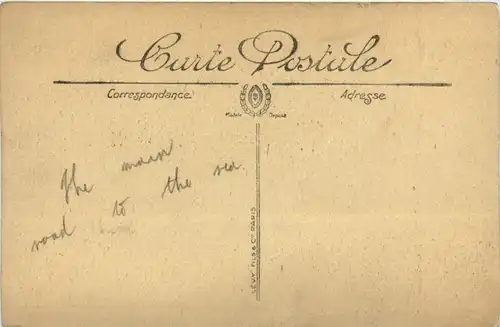 Carte Postale
Correspondance
Adresse
Modèle Déposé
The main
road to the sea
LÉVY FILS & Cie PARIS